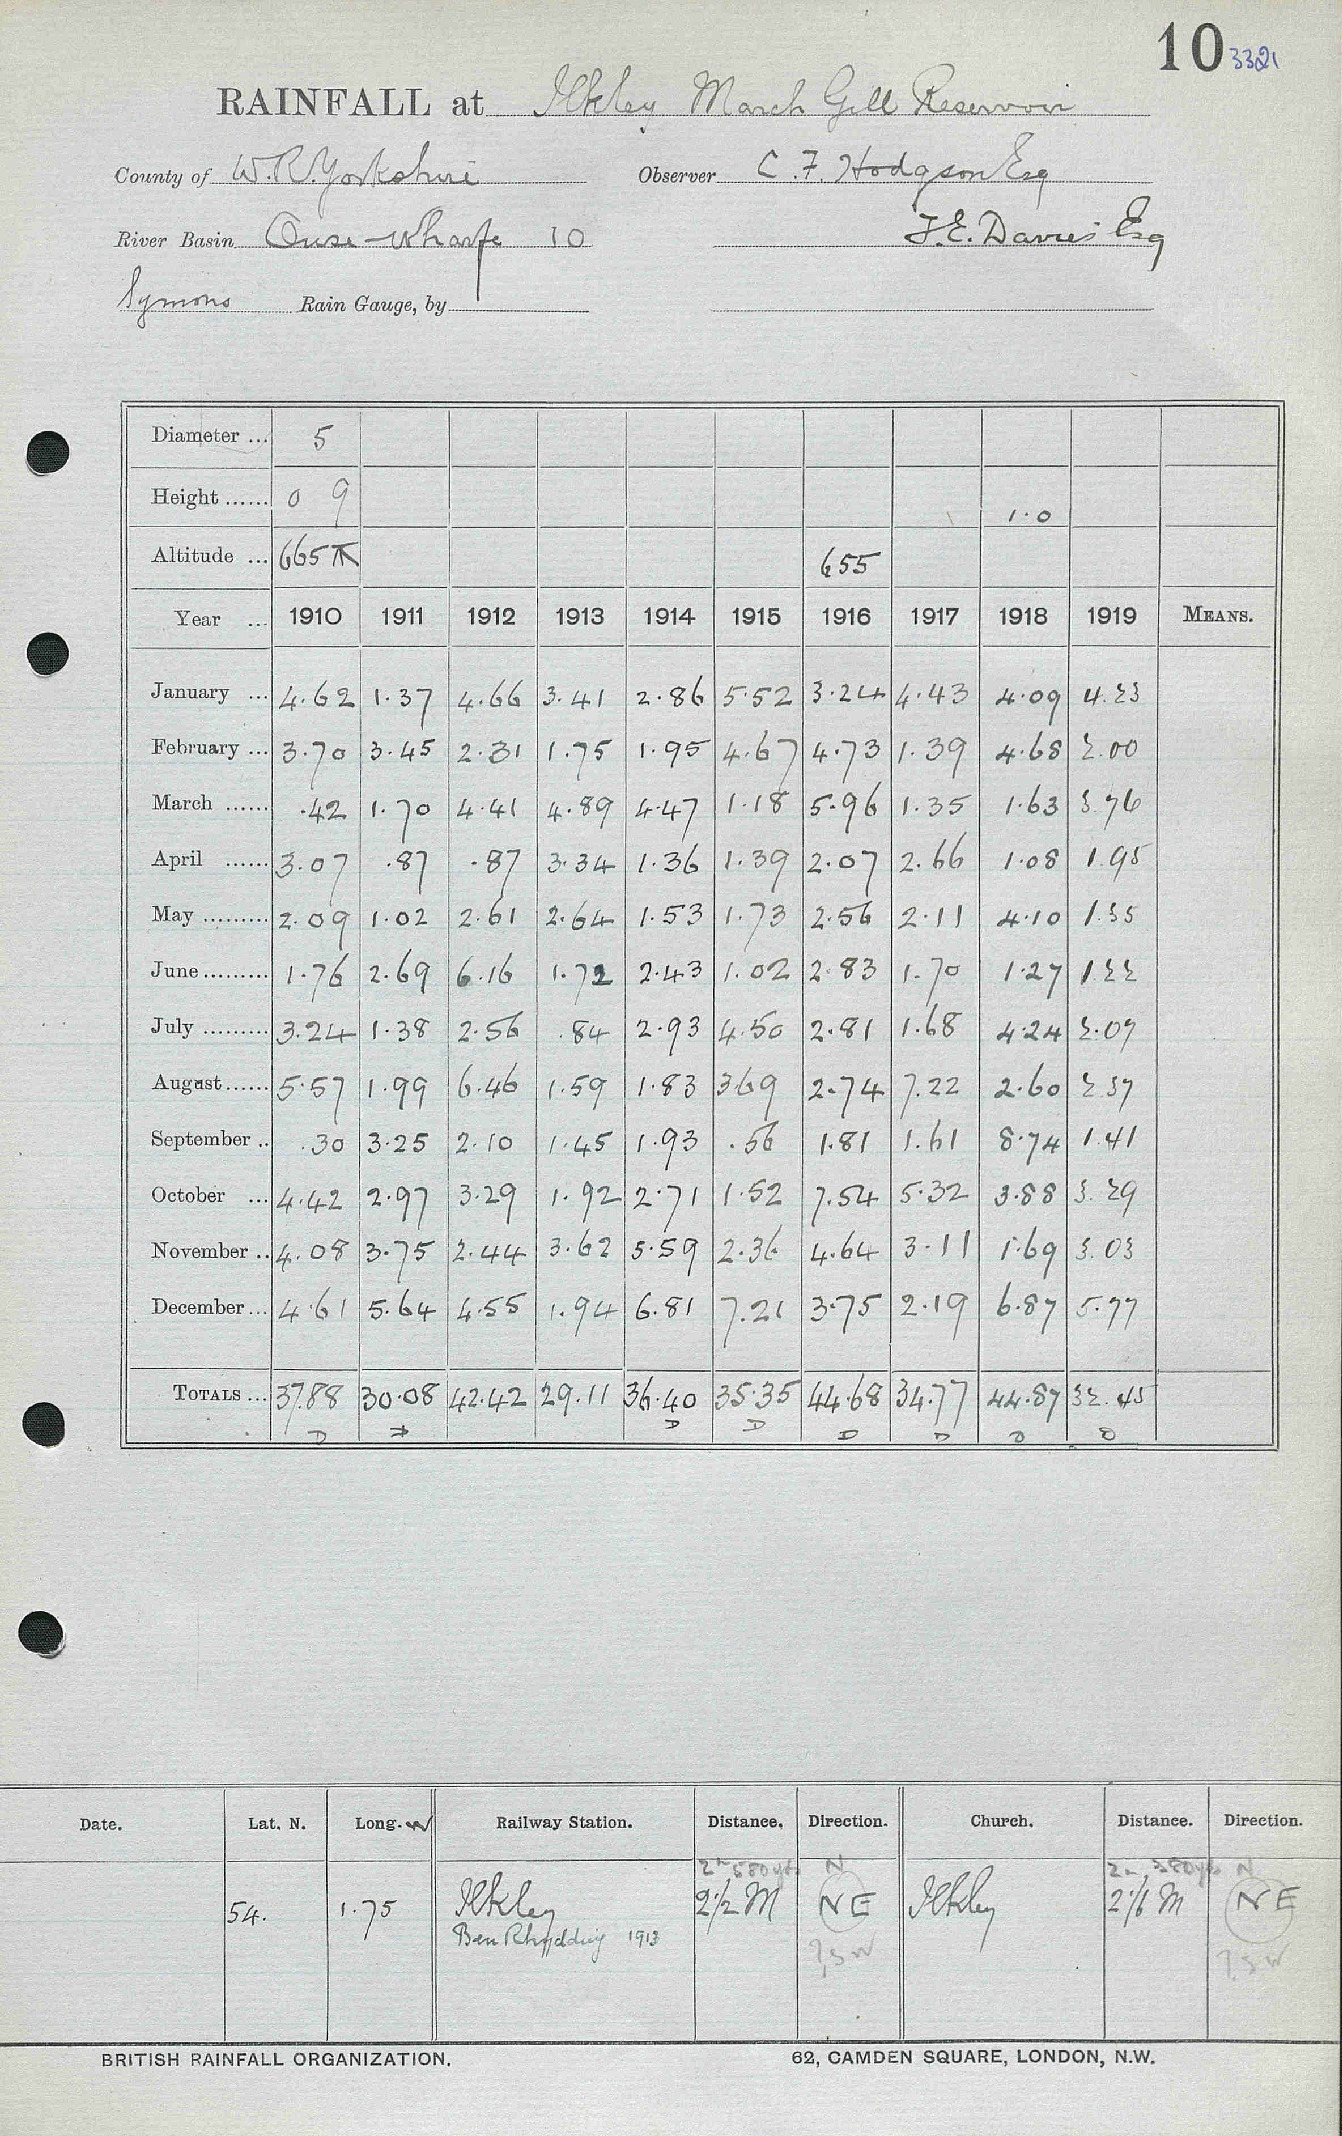 10 3321
RAINFALL at Ilkley March Gill Reservoir
County of W.R. Yorkshire Observer C. F. Hodgson Esq
River Basin Ouse-Wharfe 10 J.E. Davies Esq
Symons Rain Gauge, by
Diameter ... 5
Height ...... 0 9 1.0
Altitude ... 665 655
Year ... 1910 1911 1912 1913 1914 1915 1916 1917 1918 1919 MEANS.
January ... 4.62 1.37 4.66 3.41 2.86 5.52 3.24 4.43 4.09 4.23
February ... 3.70 3.45 2.31 1.75 1.95 4.67 4.73 1.39 4.68 2.00
March ...... .42 1.70 4.41 4.89 4.47 1.18 5.96 1.35 1.63 3.76
April ...... 3.07 .87 .87 3.34 1.36 1.39 2.07 2.66 1.08 1.95
May ......... 2.09 1.02 2.61 2.64 1.53 1.73 2.56 2.11 4.10 1.35
June ......... 1.76 2.69 6.16 1.72 2.43 1.02 2.83 1.70 1.27 1.22
July ......... 3.24 1.38 2.56 .84 2.93 4.50 2.81 1.68 4.24 2.07
August ...... 5.57 1.99 6.46 1.59 1.83 3.69 2.74 7.22 2.60 2.37
September .. .30 3.25 2.10 1.45 1.93 .56 1.81 1.61 8.74 1.41
October ... 4.42 2.97 3.29 1.92 2.71 1.52 7.54 5.32 3.88 3.29
November .. 4.08 3.75 2.44 3.62 5.59 2.36 4.64 3.11 1.69 3.03
December ... 4.61 5.64 4.55 1.94 6.81 7.21 3.75 2.19 6.87 5.77
TOTALS ... 37.88 30.08 42.42 29.11 36.40 35.35 44.68 34.77 44.87 32.45
D D D D D D D D
Date. Lat. N. Long. W Railway Station. Distance. Direction. Church. Distance. Direction.
2m 580 yds N 2m 380 yds N
54. 1.75 Ilkley 2½ M NE Ilkley NE
Ben Rhydding 1913
? SW ? SW
BRITISH RAINFALL ORGANIZATION. 62, CAMDEN SQUARE, LONDON, N.W.